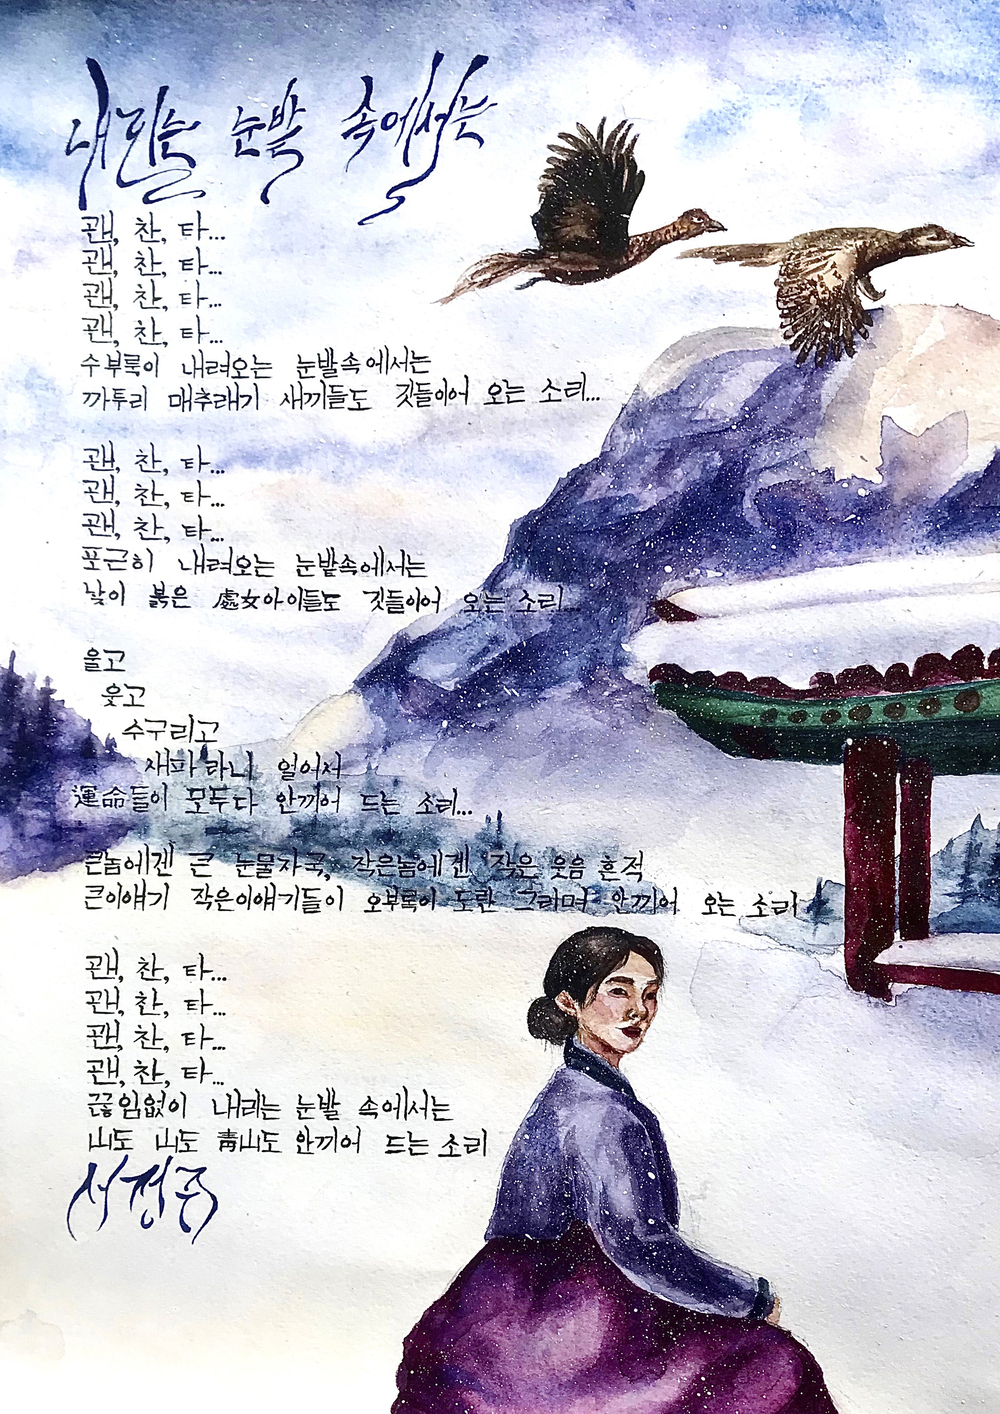 내리는 눈발 속에서는
괜, 찬, 타...
괜, 찬, 타...
괜, 찬, 타...
괜, 찬, 타...
수부룩이 내려오는 눈발속에서는
까투리 매추래기 새끼들도 깃들이어 오는 소리...
괜, 찬, 타...
괜, 찬, 타...
괜, 찬, 타...
포근히 내려오는 눈발속에서는
낯이 붉은 處女아이들도 깃들이어 오는 소리...
울고
웃고
수구리고
새파라니 얼어서
運命들이 모두다 안끼어 드는 소리...
큰놈에겐 큰 눈물자국, 작은놈에겐 작은 웃음 흔적
큰이얘기 작은이얘기들이 오부록이 도란 그리며 안끼어 오는 소리
괜, 찬, 타...
괜, 찬, 타...
괜, 찬, 타...
괜, 찬, 타...
끊임없이 내리는 눈발 속에서는
山도 山도 靑山도 안끼어 드는 소리
(서정주)